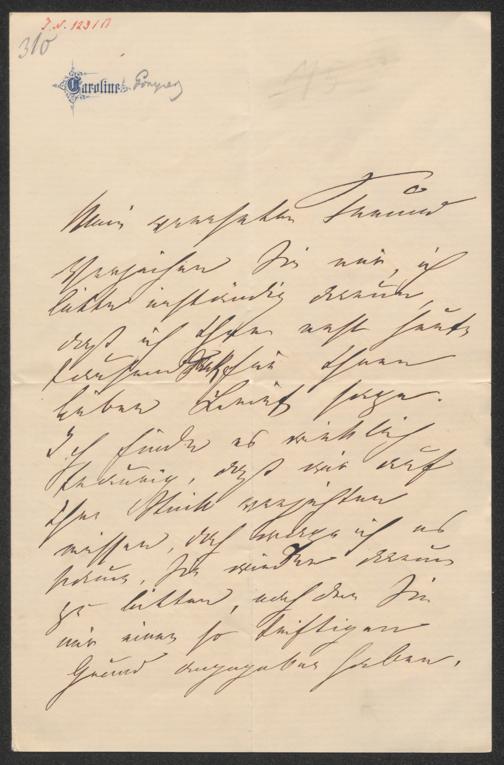 J. N. 12310
310
Caroline v. Gomperz
Mein verehrter Freund
Verzeihen Sie mir, ich
bitte inständig darum,
daß ich Ihnen erst heute
tausend Dank für Ihren
lieben Brief sage.
Ich finde es wirklich
traurig, daß wir auf
Ihr Stück verzichten
müssen, doch wage ich es
kaum, Sie wieder darum
zu bitten, nachdem Sie
mir einen so triftigen
Grund angegeben haben.